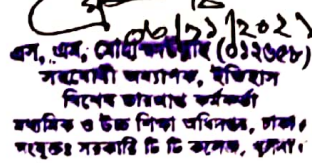 ০৬/১১/২০২১
এস, এম, মোঃ (০১২৬৫৮)
সহযোগী অধ্যাপক, ইতিহাস
বিশেষ ভারপ্রাপ্ত কর্মকর্তা
মাধ্যমিক ও উচ্চ শিক্ষা অধিদপ্তর, ঢাকা।
সংযুক্তঃ সরকারি টি টি কলেজ, খুলনা।